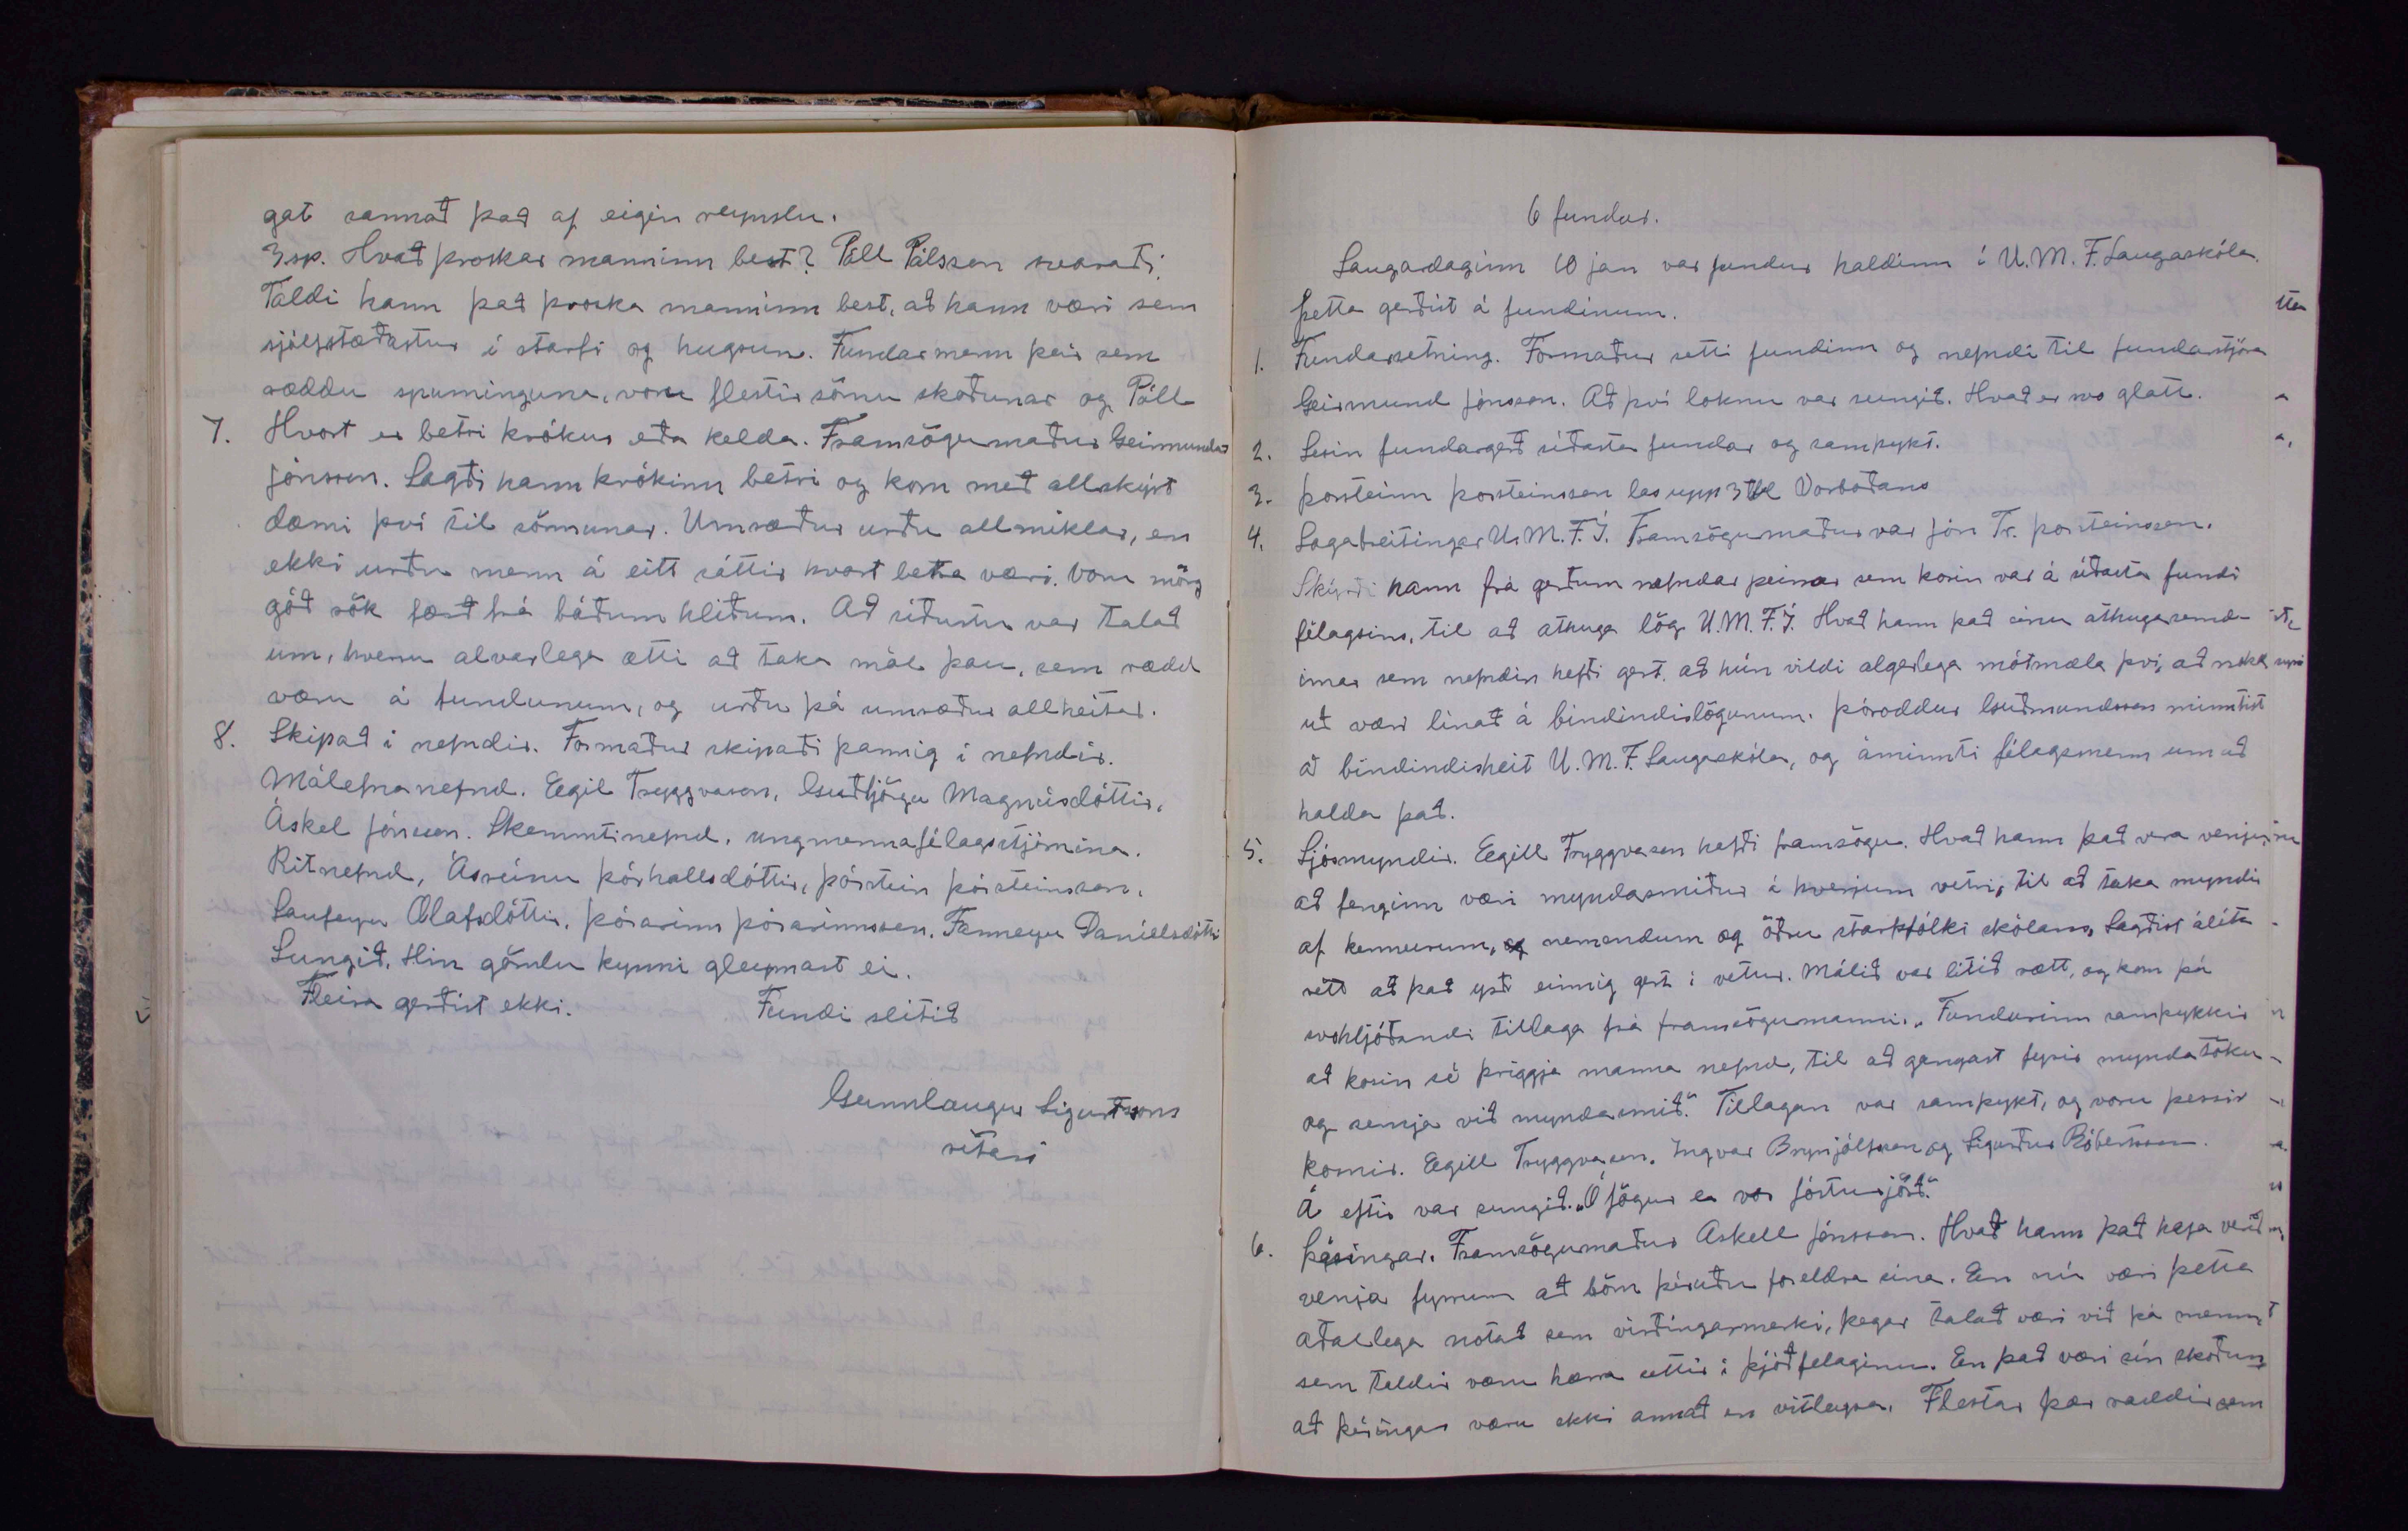 gat sannað það af eigin reynslu.
3.sp. Hvað þroskar manninn best? Páll Pálsson svaraði.
Taldi hann það þroska manninn best, að hann væri sem
sjálfstæðastur í starfi og hugsun. Fundarmenn þeir sem
ræddu spurninguna, voru flestir sömu skoðunar og Páll
7. Hvort er betri krókur eða kelda. Framsögumaður Geirmundur
Jónsson. Sagði hann krókinn betri og kom með allskýrt
dæmi því til sönnunar. Umræður urðu allmiklar, en
ekki urðu menn á eitt sáttir hvort betra væri. Voru mörg
góð rök færð frá báðum hliðum. Að síðustu var talað
um, hvenu alvarlega ætti að taka mál þau, sem rædd
væru á fundunum, og urðu þá umræður allheitar.
8. Skipað í nefndir. Formaður skipaði þannig í nefndir.
Málefnanefnd. Egil Tryggvason, Guðbjörgu Magnúsdóttir,
Áskel Jónsson. Skemmtinefnd, ungmennafélagsstjórnina.
Ritnefnd, Ásrúnu Þórhallsdóttir, Þórstein Þórsteinsson,
Laufeyu Ólafsdóttir, Þórarinn Þórarinnsson, Fanneyu Daníelsdóttir
Sungið, Hin gömlu kynni gleymast ei.
Fleira gerðist ekki. Fundi slitið
Gunnlaugur Sigurðsson
ritari
6 fundur.
Laugardaginn 10 jan var fundur haldinn í U.M.F. Laugaskóla.
Þetta gerðist á fundinum.
1. Fundarsetning. Formaður setti fundinn og nefndi til fundarstjóra
Geirmund Jónsson. Að því loknu var sungið. Hvað er svo glatt.
2. Lesin fundargerð síðasta fundar og samþykt.
3. Þorsteinn Þorsteinsson las upp 3 tbl Vorboðans
4. Lagabreitingar U.M.F.Í. Framsögumaður var Jón Tr. Þorsteinsson.
Skýrði hann frá gerðum nefndar þeirrar sem kosin var á síðasta fundi
félagsins, til að athuga lög U.M.F.Í. Hvað hann það einu athugasemd-
irnar sem nefndin hefði gert, að hún vildi algerlega mótmæla því, að nokk
uð væri línað á bindindislögunum. Þóroddur Guðmundsson minntist
á bindindisheit U.M.F. Laugaskóla, og áminnti félagsmenn um að
halda það.
5. Ljósmyndir. Egill Tryggvason hafði framsögu. Hvað hann það vera venju,
að fenginn væri myndasmiður á hverjum vetri, til að taka myndir
af kennurum, nemendum og öðru starfsfólki skólans, Sagðist álíta
rétt að það yrði einnig gert í vetur. Málið var lítið rætt, og kom þá
svohljóðandi tillaga frá framsögumanni. „Fundurinn samþykkir
að kosin sé þriggja manna nefnd, til að gangast fyrir myndatöku
og semja við myndasmið." Tillagan var samþykt, og voru þessir
kosnir. Egill Tryggvason, Ingvar Brynjólfsson og Sigurður Róbertsson.
Á eftir var sungið. „Ó fögur er vor fósturjörð."
6. Þéringar. Framsögumaður Áskell Jónsson. Hvað hann það hafa verið
venja fyrrum að börn þéruðu foreldra sína. En nú væri þetta
aðallega notað sem virðingarmerki, þegar talað væri við þá menn,
sem taldir væru hærra settir í þjóðfélaginu. En það væri sín skoðun
að þéringar væru ekki annað en vitleysa. Flestar þær raddir sem